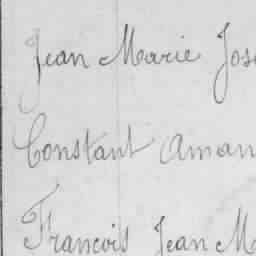 Jean Marie Jos
Constant Aman
Francois Jean Ma